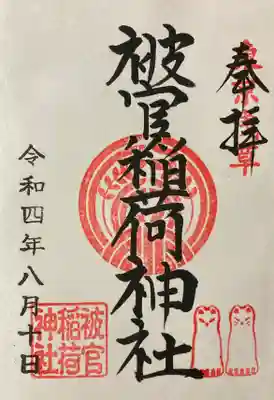 奉拝
東京浅草
被官稲荷神社
令和四年八月十日
被官
稲荷
神社